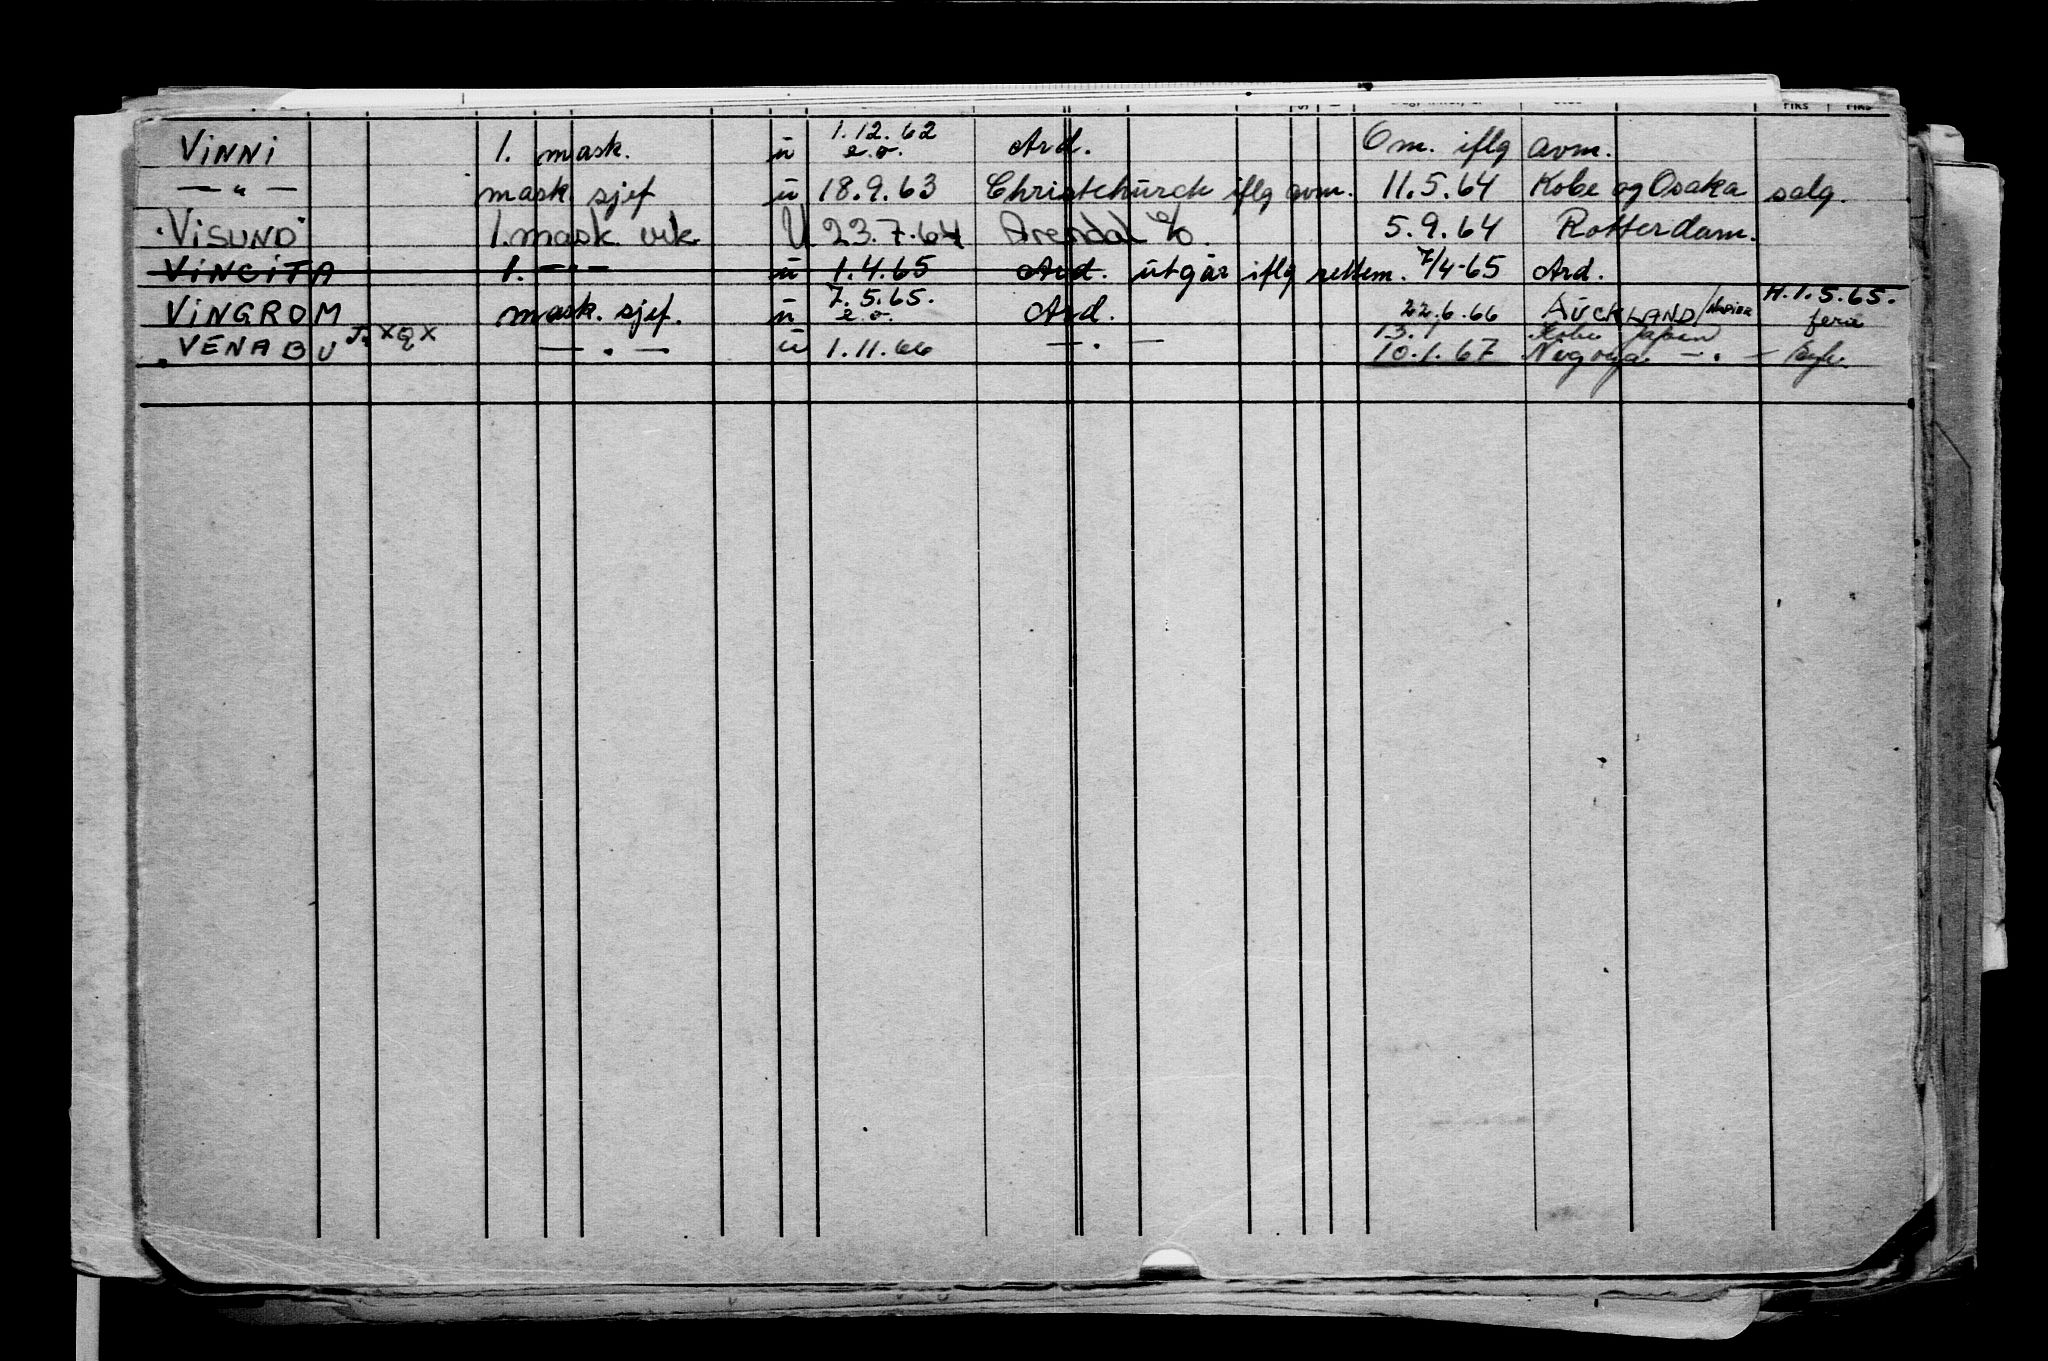 VINNI 1. mask. u 1.12.62 e.o. Ard. Om. iflg avm.
— " — mask sjef u 18.9.63 Christchurch iflg avm. 11.5.64 Kobe og Osaka salg.
"VISUND" 1. mask. vik. U 23.7.64 Arendal 5.9.64 Rotterdam.
VINCITA 1. — " — u 1.4.65 Ard. utgår iflg rettem. 7/4-65 Ard.
VINGROM mask. sjef. u 7.5.65. e.o. Ard. 22.6.66 AUCKLAND/ H.T.5.65. ferie
13.1 Kobe Japan
VENABU J. x Q x — . — u 1.11.66 — . — 10.1.67 Nagoya — . —